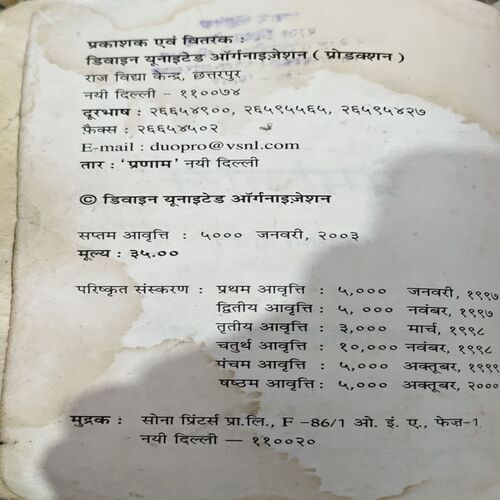 प्रकाशक एवं वितरक :
डिवाइन यूनाइटेड ऑर्गनाइज़ेशन ( प्रोडक्शन )
राज विद्या केन्द्र, छत्तरपुर
नयी दिल्ली – ११००७४
दूरभाष : २६६५४९००, २६५९५५६५, २६५९५४२७
फ़ैक्स : २६६५४५०२
E-mail : duopro@vsnl.com
तार : 'प्रणाम' नयी दिल्ली
© डिवाइन यूनाइटेड ऑर्गनाइज़ेशन
सप्तम आवृत्ति : ५००० जनवरी, २००३
मूल्य : ३५.००
परिष्कृत संस्करण : प्रथम आवृत्ति : ५,००० जनवरी, १९९७
द्वितीय आवृत्ति : ५, ००० नवंबर, १९९७
तृतीय आवृत्ति : ३,००० मार्च, १९९८
चतुर्थ आवृत्ति : १०,००० नवंबर, १९९८
पंचम आवृत्ति : ५,००० अक्तूबर, १९९९
षष्ठम आवृत्ति : ५,००० अक्तूबर, २०००
मुद्रक : सोना प्रिंटर्स प्रा.लि., F –86/1 ओ. इं. ए., फेज़-1
नयी दिल्ली — ११००२०